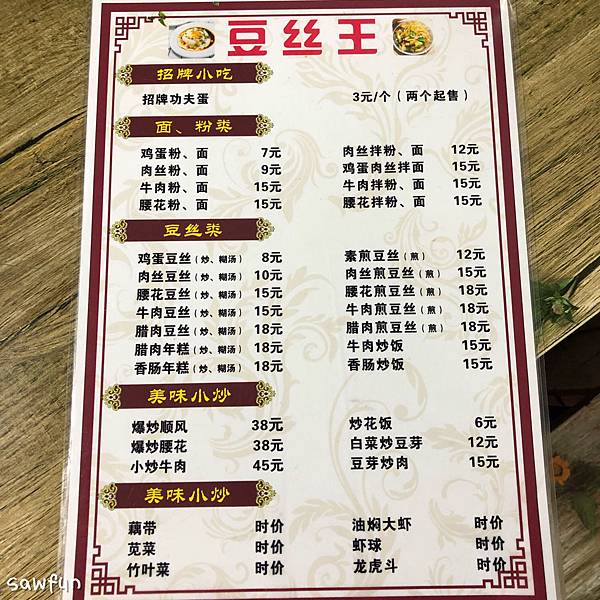 豆丝王
招牌小吃
招牌功夫蛋 3元/个（两个起售）
面、粉类
鸡蛋粉、面 7元 肉丝拌粉、面 12元
肉丝粉、面 9元 鸡蛋肉丝拌面 15元
牛肉粉、面 15元 牛肉拌粉、面 15元
腰花粉、面 15元 腰花拌粉、面 15元
豆丝类
鸡蛋豆丝（炒、糊汤） 8元 素煎豆丝 12元
肉丝豆丝（炒、糊汤） 10元 肉丝煎豆丝（煎） 15元
腰花豆丝（炒、糊汤） 15元 腰花煎豆丝（煎） 18元
牛肉豆丝（炒、糊汤） 15元 牛肉煎豆丝（煎） 18元
腊肉豆丝（炒、糊汤） 18元 腊肉煎豆丝（煎） 18元
腊肉年糕（炒、糊汤） 18元 牛肉炒饭 15元
香肠年糕（炒、糊汤） 18元 香肠炒饭 15元
美味小炒
爆炒顺风 38元 炒花饭 6元
爆炒腰花 38元 白菜炒豆芽 12元
小炒牛肉 45元 豆芽炒肉 15元
美味小炒
藕带 时价 油焖大虾 时价
苋菜 时价 虾球 时价
竹叶菜 时价 龙虎斗 时价
sawfun